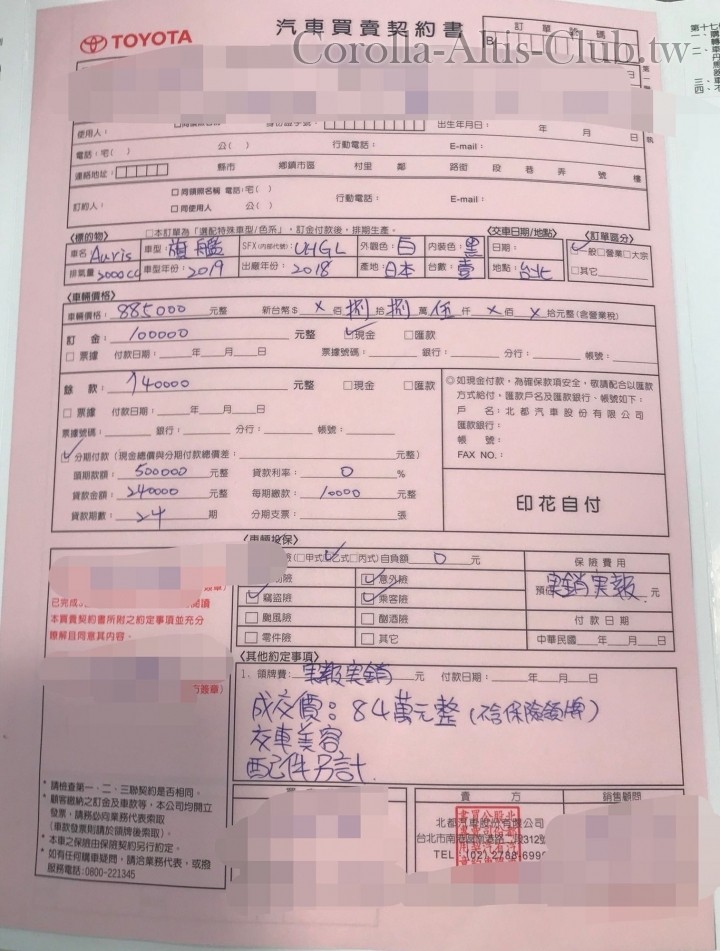 TOYOTA
汽車買賣契約書
訂單號碼
Corolla-Altis-Club.tw
使用人：
出生年月日： 年 月 日
電話：宅( ) 公( ) 行動電話： E-mail：
連絡地址： 縣市 鄉鎮市區 村里 鄰 路街 段 巷 弄 號 樓
訂約人： □同領照名稱 電話：宅( ) 行動電話： E-mail：
□同使用人 公( )
〈標的物〉 □本訂單為「選配特殊車型/色系」，訂金付款後，排期生產。 〈交車日期/地點〉 〈訂單區分〉
車名 Auris 車型：旗艦 SFX(內部代號)：UHGL 外觀色：白 內裝色：黑 日期： ☑一般□營業□大宗
排氣量 2000cc 車型年份：2019 出廠年份：2018 產地：日本 台數：壹 地點：台北 □其它
〈車輛價格〉
車輛價格：885000 元整 新台幣$ X 佰 捌 拾 捌 萬 伍 仟 X 佰 X 拾元整(含營業稅)
訂 金：100000 元整 ☑現金 □匯款
□票據 付款日期： 年 月 日 票據號碼： 銀行： 分行： 帳號：
餘 款：740000 元整 □現金 □匯款
□票據 付款日期： 年 月 日
票據號碼： 銀行： 分行： 帳號：
☑分期付款(現金總價與分期付款總價差： 元整)
頭期款額：500000 元整 貸款利率：0 %
貸款金額：240000 元整 每期繳款：10000 元整
貸款期數：24 期 分期支票： 張
◎如現金付款，為確保款項安全，敬請配合以匯款
方式給付，匯款戶名及匯款銀行、帳號如下：
戶 名：北都汽車股份有限公司
匯款銀行：
帳 號：
FAX NO.：
印花自付
〈車輛投保〉
險(□甲式☑乙式□丙式)自負額 0 元 保險費用
☑意外險 預估 實銷實報 元
☑竊盜險 ☑乘客險
□颱風險 □酗酒險 付款日期
□零件險 □其它 中華民國 年 月 日
已完成
本買賣契約書所附之約定事項並充分
瞭解且同意其內容。
方簽章)
〈其他約定事項〉
1. 領牌費：實報實銷 元 付款日期： 年 月 日
成交價：84萬元整(不含保險領牌)
交車美容
配件另計.
* 請檢查第一、二、三聯契約是否相同。
* 顧客繳納之訂金及車款等，本公司均開立
發票，請務必向業務代表索取
(車款發票則請於領牌後索取)。
* 本車之保險由保險契約另行約定。
* 如有任何購車疑問，請洽業務代表，或撥
服務電話：0800-221345
賣 方 銷售顧問
北都汽車股份有限公司
台北市南港區南港路二段312號
TEL：(02)2788-699